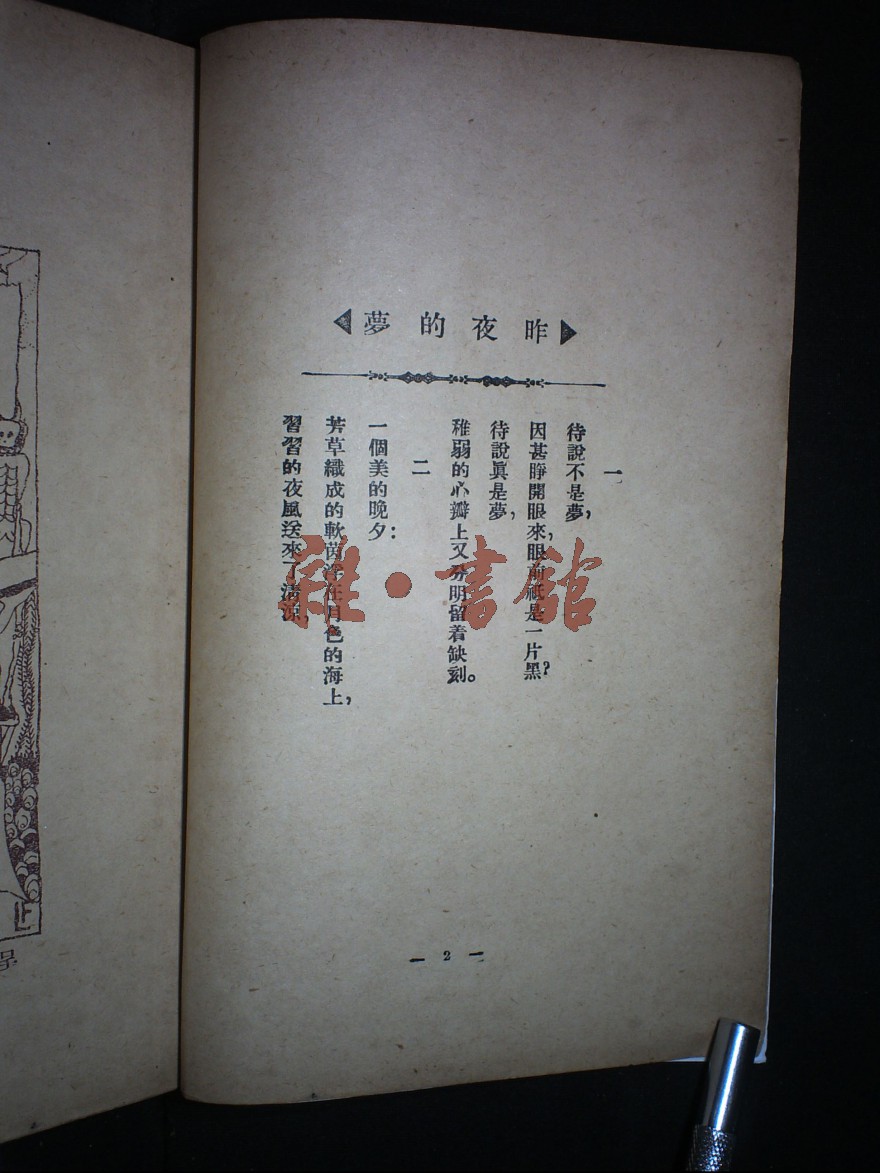 昨夜的夢
一
待說不是夢，
因甚睜開眼來，眼前祇是一片黑？
待說眞是夢，
稚弱的心瓣上又分明留着缺刻。
二
一個美的晚夕：
芳草織成的軟茵浮在月色的海上，
習習的夜風送來了清涼，
— 2 —
雜·書館
學